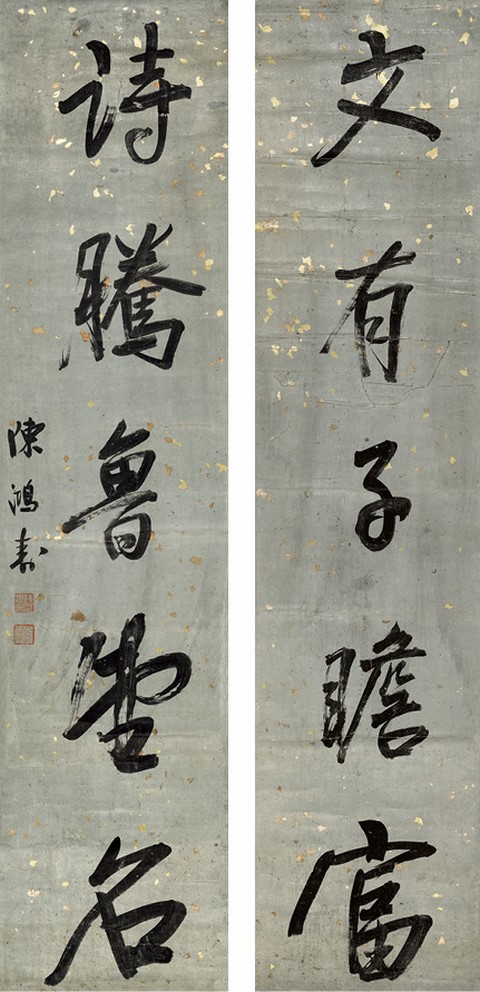 文有子瞻富
詩騰魯望名
陳鴻壽